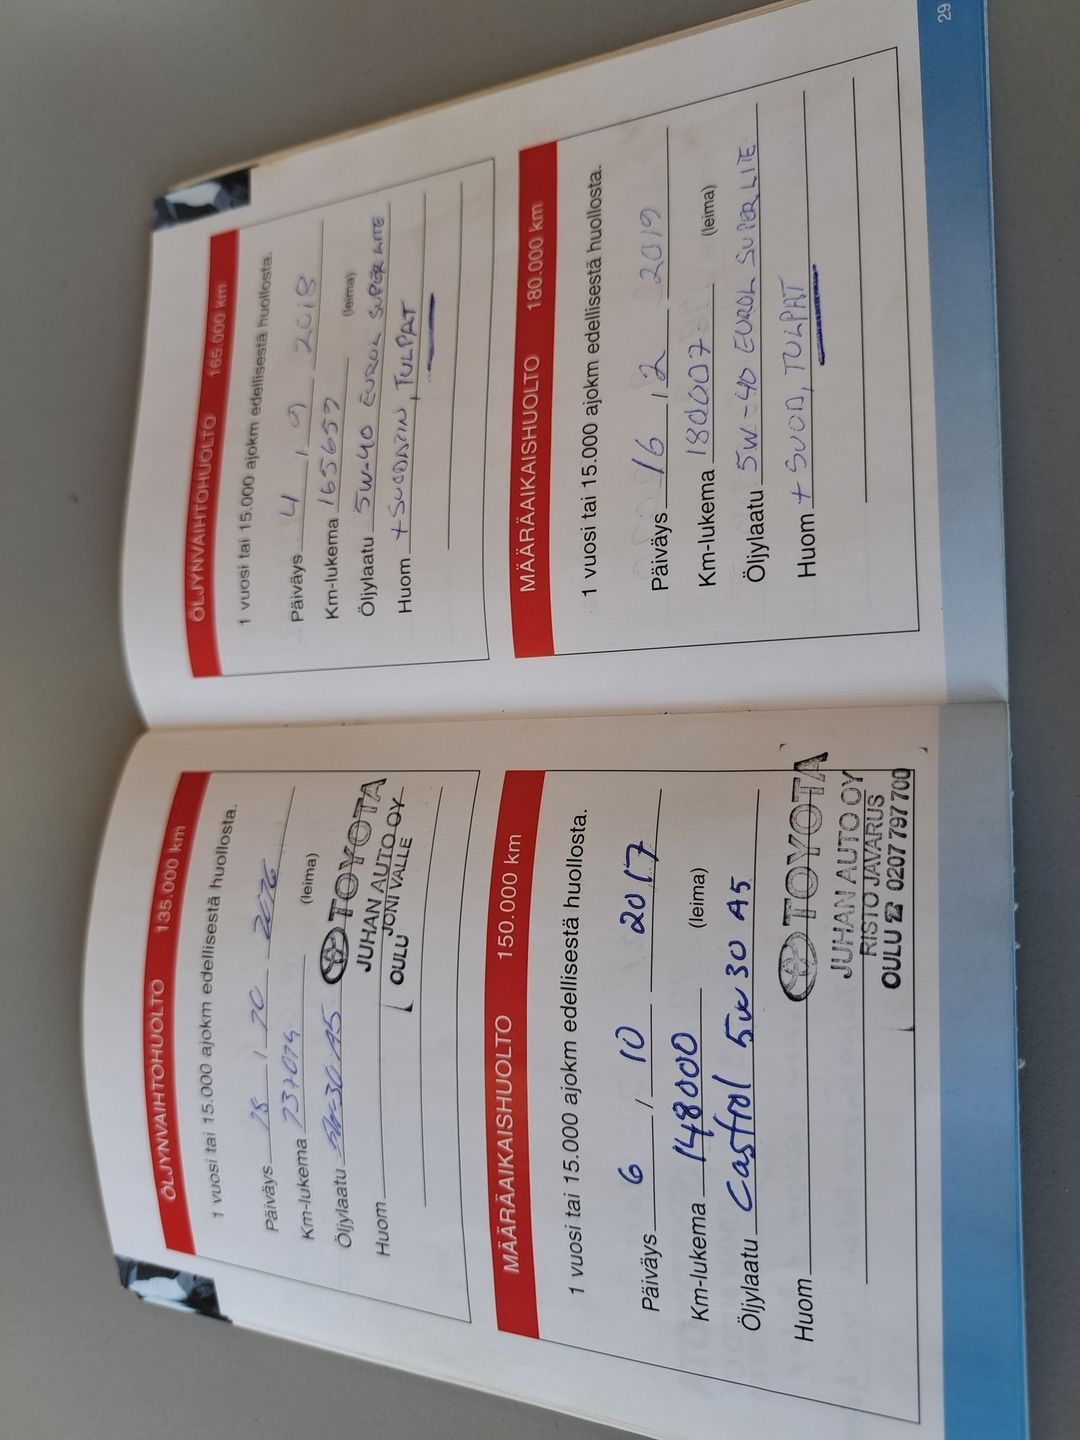 ÖLJYNVAIHTOHUOLTO 135.000 km
1 vuosi tai 15.000 ajokm edellisestä huollosta.
Päiväys 18 / 10 2016
Km-lukema 137079
(leima)
Öljylaatu 5W-30 A5
TOYOTA
JUHAN AUTO OY
JONI VALLE
OULU
Huom
MÄÄRÄAIKAISHUOLTO 150.000 km
1 vuosi tai 15.000 ajokm edellisestä huollosta.
Päiväys 6 / 10 2017
Km-lukema 148000
(leima)
Öljylaatu Castrol 5w30 A5
Huom
TOYOTA
JUHAN AUTO OY
RISTO JAVARUS
OULU ☎ 0207 797 700
ÖLJYNVAIHTOHUOLTO 165.000 km
1 vuosi tai 15.000 ajokm edellisestä huollosta.
Päiväys 4 / 9 2018
Km-lukema 165657
(leima)
Öljylaatu 5W-40 EUROL SUPER LITE
Huom + SUODATIN, TULPAT
MÄÄRÄAIKAISHUOLTO 180.000 km
1 vuosi tai 15.000 ajokm edellisestä huollosta.
Päiväys 16 / 2 2019
Km-lukema 180007
(leima)
Öljylaatu 5W-40 EUROL SUPER LITE
Huom + SUOD, TULPAT
29